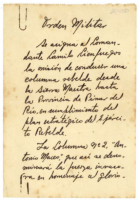 Orden Militar
Se asigna al Coman-
dante Camilo Cienfuegos
la misión de conducir una
columna rebelde desde
la Sierra Maestra hasta
la Provincia de Pinar del
Río, en cumplimiento del
plan estratégico del Ejérci-
to Rebelde.
La Columna No 2, "An-
tonio Maceo", que así se deno-
minará la fuerza invaso-
ra en homenaje al glorio-